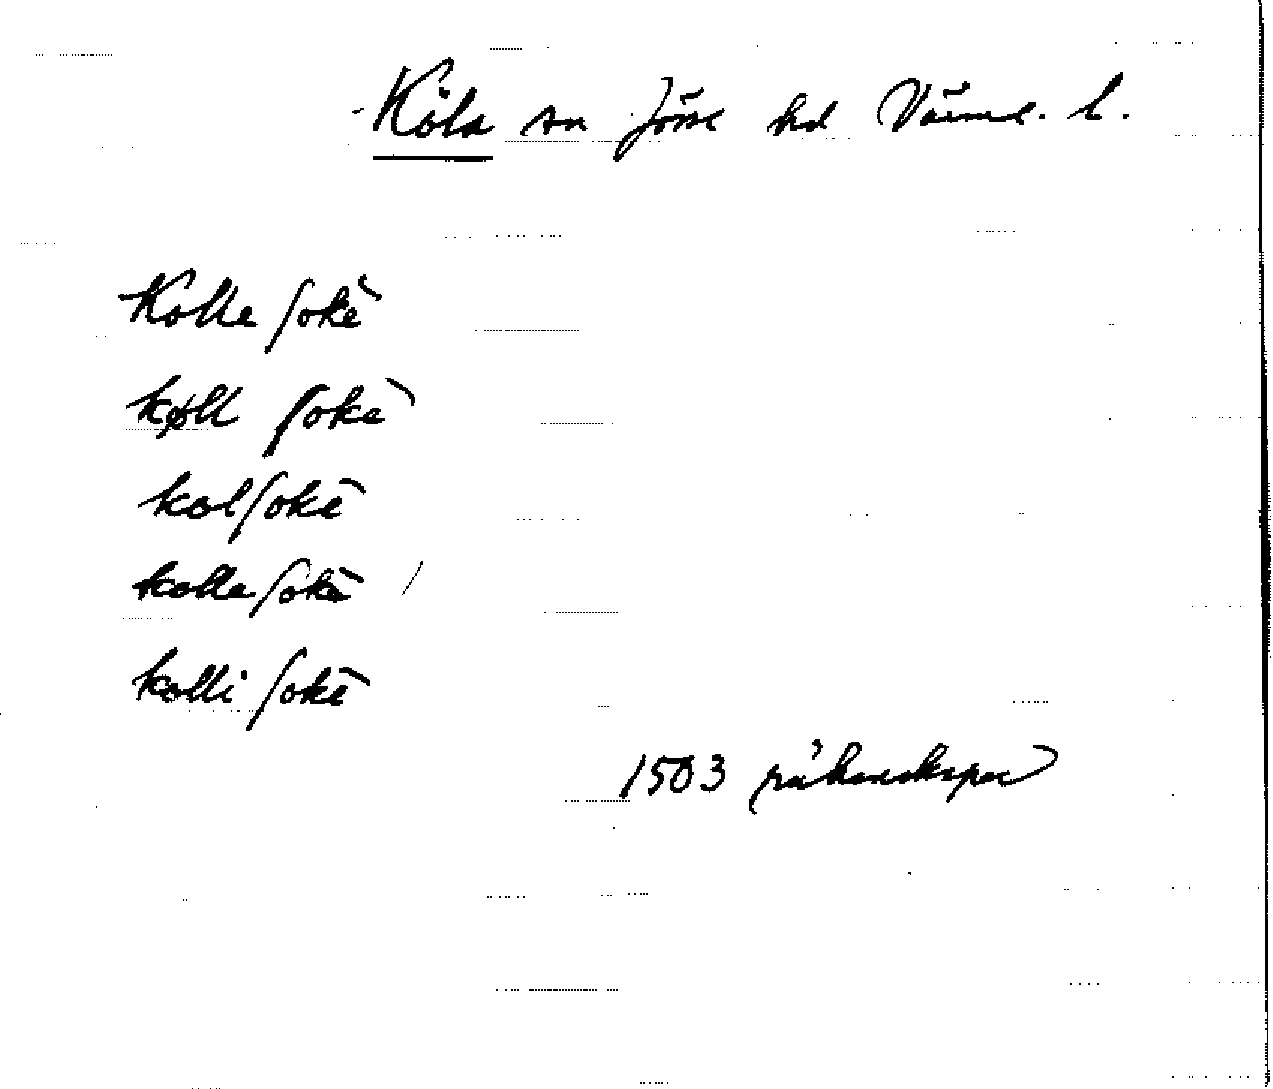 Köla sn Jösse hd Värml. l.
Kolle ſokẽ
køll ſokẽ
kolſokẽ
kolleſokẽ /
kolli ſokẽ
1503 räkenskaper